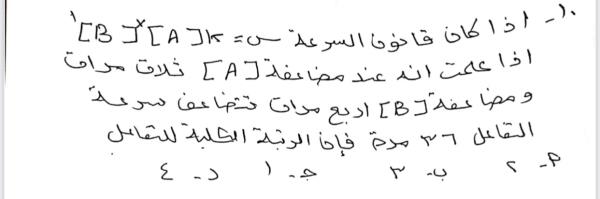 ١٠- اذا كان قانون السرعة س = k[A]ˣ[B]¹
اذا علمت انه عند مضاعفة [A] ثلاث مرات
ومضاعفة [B] اربع مرات تتضاعف سرعة
التفاعل ٣٦ مرة فإن الرتبة الكلية للتفاعل
م- ٢ ب- ٣ جـ- ١ د- ٤